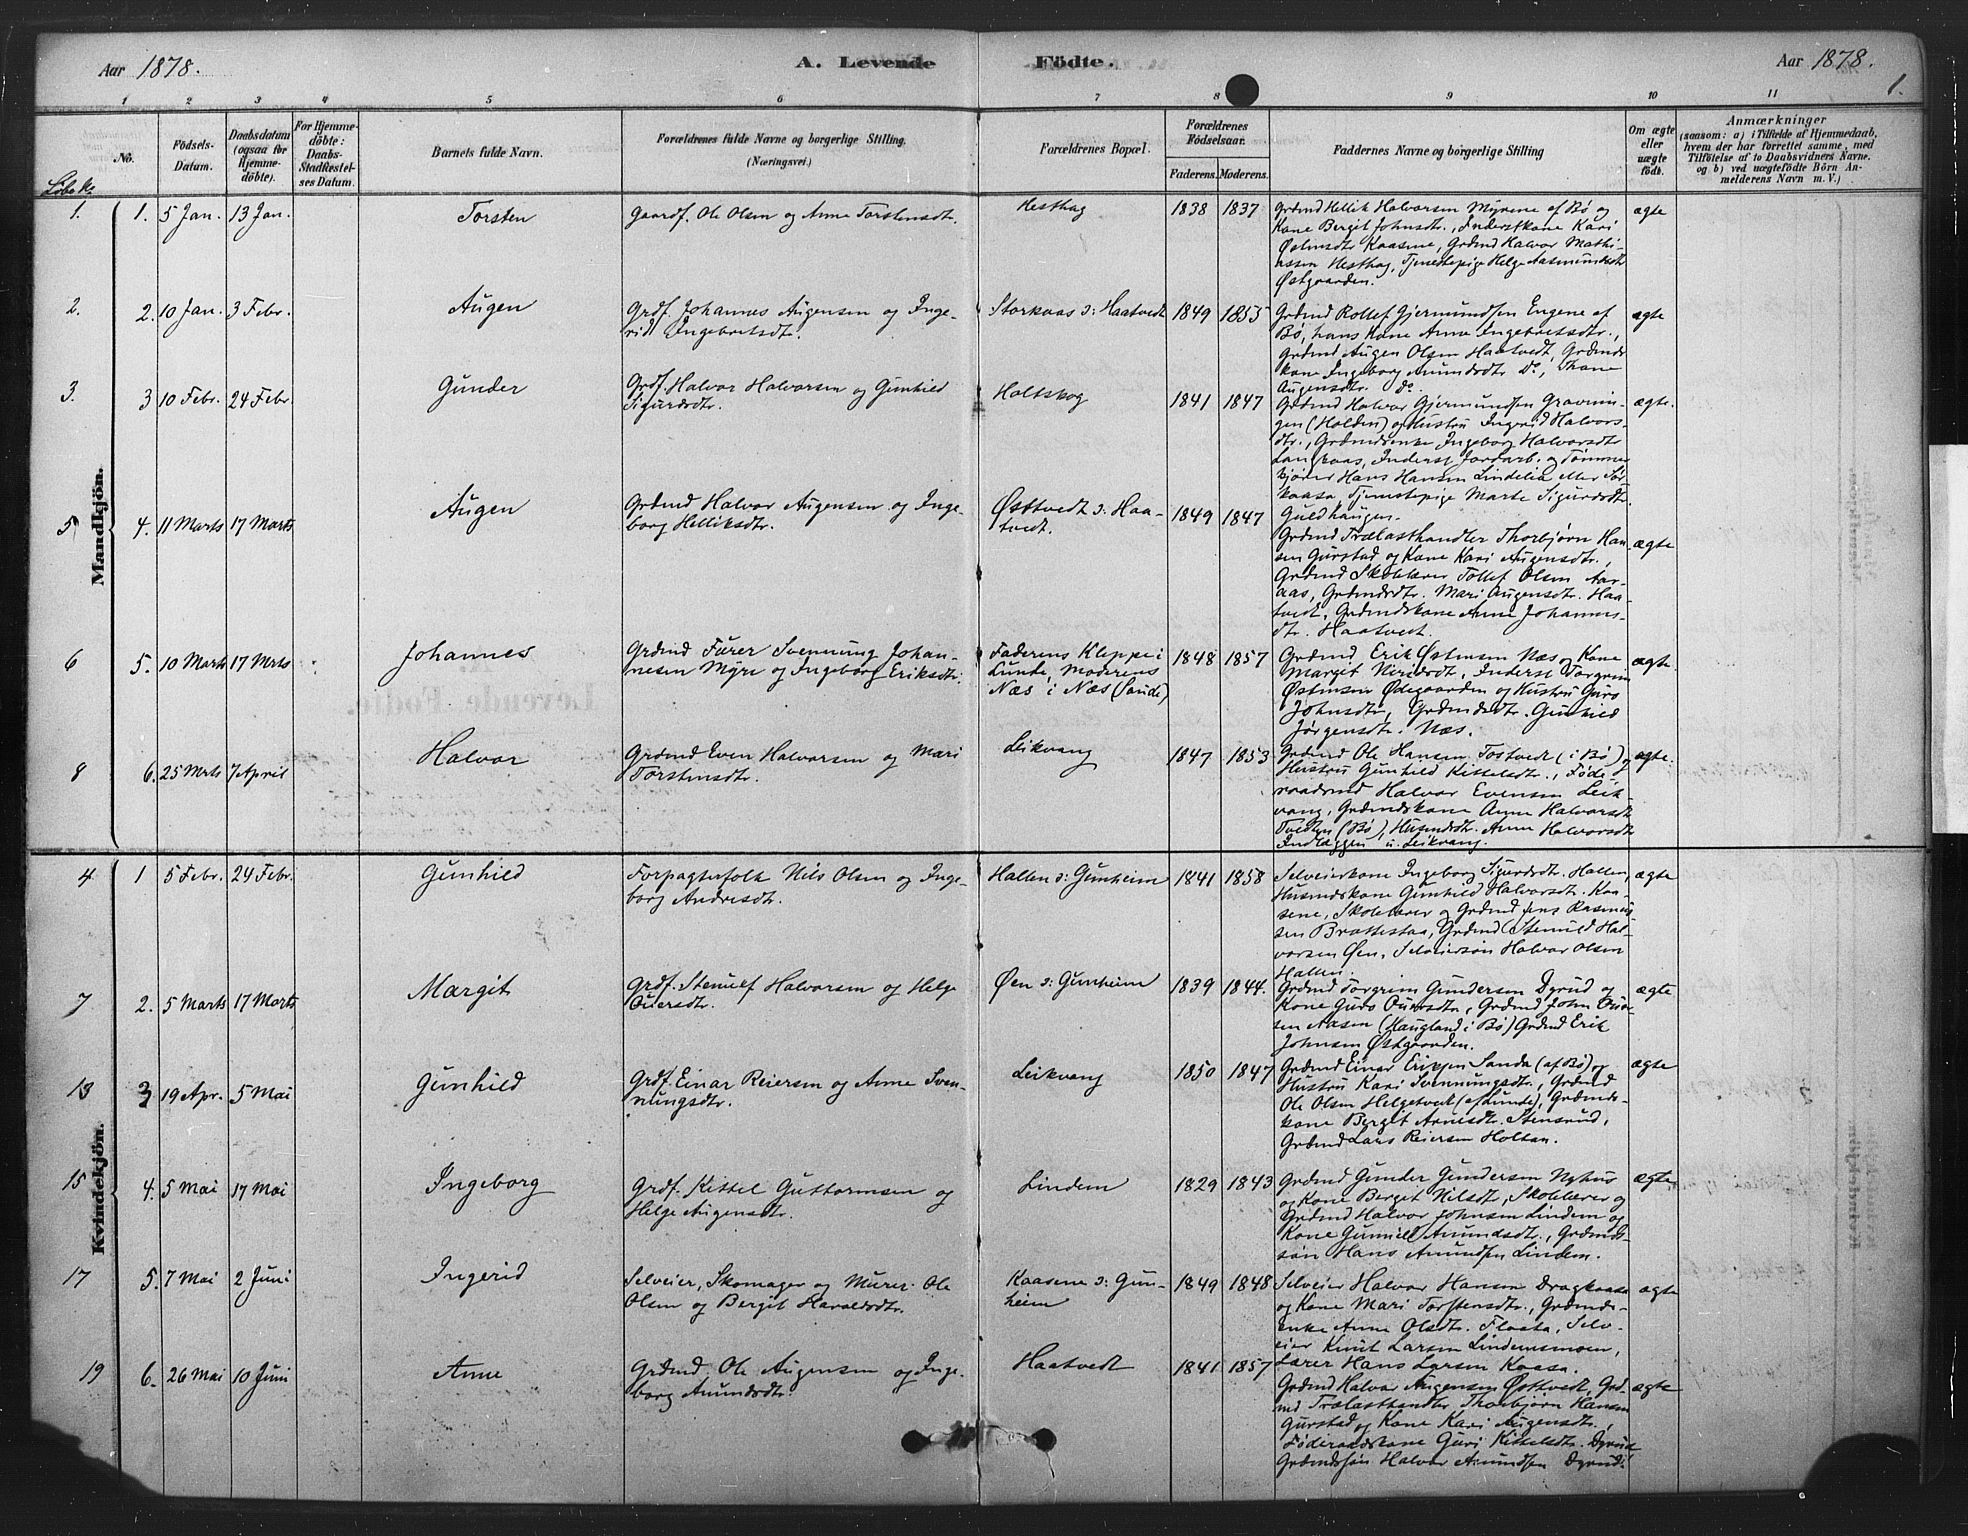 Aar 1878. A. Levende Födte. Aar 1878.
1.
1 2 3 4 5 6 7 8 9 10 11
Løbe No.
No.
Födsels-
Datum.
Daabsdatum
(ogsaa for
Hjemme-
döbte).
For Hjemme-
döbte:
Daabs-
Stadfæstel-
ses Datum.
Barnets fulde Navn.
Forældrenes fulde Navne og borgerlige Stilling.
(Næringsvei.)
Forældrenes Bopæl.
Forældrenes
Födselsaar.
Faderens. Moderens.
Faddernes Navne og borgerlige Stilling
Om ægte
eller
uægte
födt.
Anmærkninger
(saasom: a) i Tilfælde af Hjemmedaab,
hvem der har forrettet samme, med
Tilföielse af to Daabsvidners Navne.
og b) ved uægtefödte Börn An-
melderens Navn m. V.)
Mandkjön.
1. 1. 5 Jan. 13 Jan. Torsten
Gaardf. Ole Olsen og Anne Torstensdtr.
Hesthag 1838 1837
Grdmd Hellik Halvorsen Myrene af Bø og
Kone Bergit Johnsdtr., Inderstkone Kari
Østensdtr Kaasene, Grdmd Halvor Mathi-
assen Hesthag, Tjenestepige Helge Aasmundsdtr
Østgaarden.
ægte
2. 2. 10 Jan. 3 Febr. Augen
Grdf. Johannes Augensen og Inge-
rid Ingebretsdtr.
Storkaas o: Haatvedt 1849 1853
Grdmd Rollef Gjermundsen Engene af
Bø, hans Kone Anne Ingebretsdtr.,
Grdmd Augen Olsen Haatvedt, Grdmds-
kone Ingeborg Amundsdtr do, Thone
Augensdtr. do.
ægte
3. 3 10 Febr. 24 Febr. Gunder
Grdf. Halvor Halvorsen og Gunhild
Sigurdsdtr.
Holtskog 1841 1847
Grdmd Halvor Gjermundsen Gravnin-
gen (Holden) og Hustru Ingerid Halvors-
dtr., Grdmdsenke Ingeborg Halvorsdtr
Langkaas, Inderst Jordarb. og Tømmer
kjører Hans Hansen Lindelia eller Sør-
kaasa, Tjenestepige Marte Sigurdsdtr
Guldhaugen.
ægte.
5 4. 11 Marts 17 Marts Augen
Grdmd Halvor Augensen og Inge-
borg Helliksdtr.
Østtvedt o: Haa-
tvedt. 1849 1847
Grdmd Trælasthandler Thorbjørn Han-
sen Gurstad og Kone Kari Augensdtr.,
Grdmd Skolelærer Tollef Olsen Aar-
aas, Grdmdsdtr. Mari Augensdtr. Haa-
tvedt, Grdmdskone Anne Johannes-
dtr. Haatvedt.
ægte
6 5. 10 Marts 17 Mrts Johannes
Grdmd Furer Svennung Johan-
nesen Myre og Ingeborg Eriksdtr.
Faderens Kleppe i
Lunde, Moderens
Næs i Næs (Saude) 1848 1857
Grdmd Erik Østensen Næs og Kone
Margit Nirisdtr, Inderst Torgrim
Østensen Ødegaarden og Hustru Guro
Johnsdtr, Grdmdsdtr. Gunhild
Jørgensdtr. Næs.
ægte.
8 6. 25 Mrts 7 April Halvor
Grdmd Even Halvorsen og Mari
Torstensdtr.
Leikvang 1847 1853
Grdmd Ole Hansen Tostvedt (i Bø) og
Hustru Gunhild Kittelsdtr., Føde-
raadsmd Halvor Evensen Leik-
vang, Grdmdskone Anne Halvorsdtr
Tvedten (Bø), Husmdsdtr. Anne Halvorsdtr
Indlæggen u. Leikvang.
ægte.
Kvindekjön.
4. 1 5 Febr. 24 Febr. Gunhild
Forpagterfolk Nils Olsen og Inge-
borg Andresdtr.
Hallen o: Gunheim 1841 1858
Selveierkone Ingeborg Sigurdsdtr. Hallen,
Husmdskone Gunhild Halvorsdtr. Kaa-
sene, Skolelærer og Grdmd Jens Rasmus-
sen Brattestaa, Grdmd Stenulf Hal-
vorsen Øen, Selveiersøn Halvor Olsen
Hallen.
ægte
7 2. 5 Marts 17 Marts Margit
Grdf. Stenulf Halvorsen og Helge
Ouersdtr.
Øen o: Gunheim 1839 1844.
Grdmd Torgrim Gundersen Dyrud og
Kone Guro Ouersdtr, Grdmd John Ouer-
sen Aasen (Haugland i Bø) Grdmd Erik
Johnsen Østgaarden.
ægte
13 3 19 Apr. 5 Mai Gunhild
Grdf. Einar Reiersen og Anne Sven-
nungsdtr.
Leikvang 1850 1847
Grdmd Einar Eriksen Sanda (af Bø) og
Hustru Kari Svennungsdtr., Grdmd
Ole Olsen Helgetvedt (af Lunde), Grdmds-
kone Bergit Arnesdtr. Stensrud,
Grdmd Lars Reiersen Holtan.
ægte
15 4. 5 Mai 17 Mai Ingeborg
Grdf. Kittel Guttormsen og
Helge Augensdtr.
Lindem 1829 1843
Grdmd Gunder Gundersen Nyhus
og Kone Berget Nilsdtr, Skolelærer og
Grdmd Halvor Johnsen Lindem og
Kone Gunnild Amundsdtr., Grdmds-
søn Hans Amundsen Lindem.
ægte
17 5. 7 Mai 2 Juni Ingerid
Selveier, Skomager og Murer Ole
Olsen og Bergit Haraldsdtr.
Kaasene o: Gun-
heim 1849 1848
Selveier Halvor Hansen Dragkaasa
og Kone Mari Torstensdtr., Grdmds-
enke Anne Olsdtr. Flaata, Selv-
eier Knut Larsen Lindemsmoen,
Lærer Hans Larsen Kaasa.
ægte
19 6. 26 Mai 10 Juni Anne
Grdmd Ole Augensen og Inge-
borg Amundsdtr.
Haatvedt 1841 1857
Grdmd Halvor Augensen Østtvedt, Grd-
md Trælasthandler Thorbjørn Hansen
Gurstad og Kone Kari Augensdtr.,
Føderaadskone Guri Kittelsdtr. Dyrud
Grdmdssøn Halvor Amundsen Dyrud.
ægte